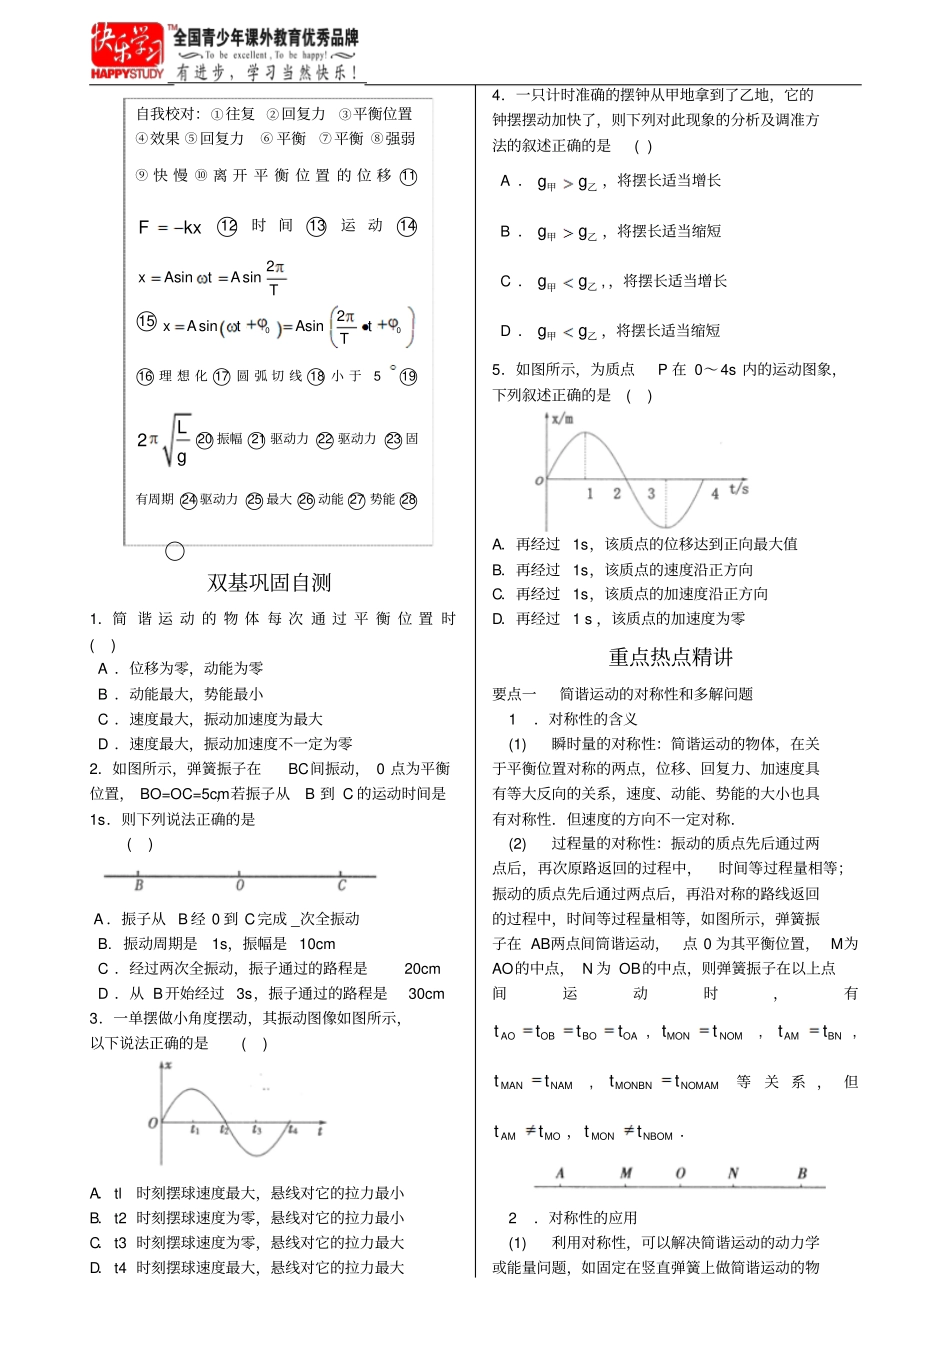 快乐学习™
HAPPYSTUDY
全国青少年课外教育优秀品牌
To be excellent , To be happy!
有进步，学习当然快乐！
自我校对：①往复 ②回复力 ③平衡位置
④效果 ⑤回复力 ⑥平衡 ⑦平衡 ⑧强弱
⑨快慢⑩离开平衡位置的位移⑪
F = −kx ⑫时间⑬运动⑭
x = Asin ωt = A sin 2π/T
⑮ x = A sin(ωt + φ₀) = Asin(2π/T •t + φ₀)
⑯理想化⑰圆弧切线⑱小于 5°⑲
2π√(L/g) ⑳振幅 ㉑驱动力 ㉒驱动力 ㉓固
有周期 ㉔驱动力 ㉕最大 ㉖动能 ㉗势能 ㉘
双基巩固自测
1．简谐运动的物体每次通过平衡位置时
( )
A ．位移为零，动能为零
B ．动能最大，势能最小
C ．速度最大，振动加速度为最大
D ．速度最大，振动加速度不一定为零
2．如图所示，弹簧振子在 BC间振动， 0 点为平衡
位置， BO=OC=5cm，若振子从 B 到 C 的运动时间是
1s．则下列说法正确的是
( )
B O C
A ．振子从 B 经 0 到 C 完成 _次全振动
B．振动周期是 1s，振幅是 10cm
C ．经过两次全振动，振子通过的路程是 20cm
D ．从 B 开始经过 3s，振子通过的路程是 30cm
3．一单摆做小角度摆动，其振动图像如图所示，
以下说法正确的是 ( )
x
O t₁ t₂ t₃ t₄ t
A. tl 时刻摆球速度最大，悬线对它的拉力最小
B. t2 时刻摆球速度为零，悬线对它的拉力最小
C. t3 时刻摆球速度为零，悬线对它的拉力最大
D. t4 时刻摆球速度最大，悬线对它的拉力最大
4．一只计时准确的摆钟从甲地拿到了乙地，它的
钟摆摆动加快了，则下列对此现象的分析及调准方
法的叙述正确的是 ( )
A ． g甲 > g乙 ，将摆长适当增长
B ． g甲 > g乙 ，将摆长适当缩短
C ． g甲 < g乙 ，，将摆长适当增长
D ． g甲 < g乙 ，将摆长适当缩短
5．如图所示，为质点 P 在 0～4s 内的运动图象，
下列叙述正确的是 ( )
x/m
O 1 2 3 4 t/s
A. 再经过 1s，该质点的位移达到正向最大值
B. 再经过 1s，该质点的速度沿正方向
C. 再经过 1s，该质点的加速度沿正方向
D. 再经过 1 s ，该质点的加速度为零
重点热点精讲
要点一 简谐运动的对称性和多解问题
1 ．对称性的含义
(1) 瞬时量的对称性：简谐运动的物体，在关
于平衡位置对称的两点，位移、回复力、加速度具
有等大反向的关系，速度、动能、势能的大小也具
有对称性．但速度的方向不一定对称．
(2) 过程量的对称性：振动的质点先后通过两
点后，再次原路返回的过程中， 时间等过程量相等；
振动的质点先后通过两点后，再沿对称的路线返回
的过程中，时间等过程量相等，如图所示，弹簧振
子在 AB两点间简谐运动， 点 0 为其平衡位置， M为
AO的中点， N 为 OB的中点，则弹簧振子在以上点
间运动时，有
tAO = tOB = tBO = tOA ，tMON = tNOM ，tAM = tBN ，
tMAN = tNAM ，tMONBN = tNOMAM 等关系，但
tAM ≠ tMO ，tMON ≠ tNBOM ．
A M O N B
2 ．对称性的应用
(1) 利用对称性，可以解决简谐运动的动力学
或能量问题，如固定在竖直弹簧上做简谐运动的物